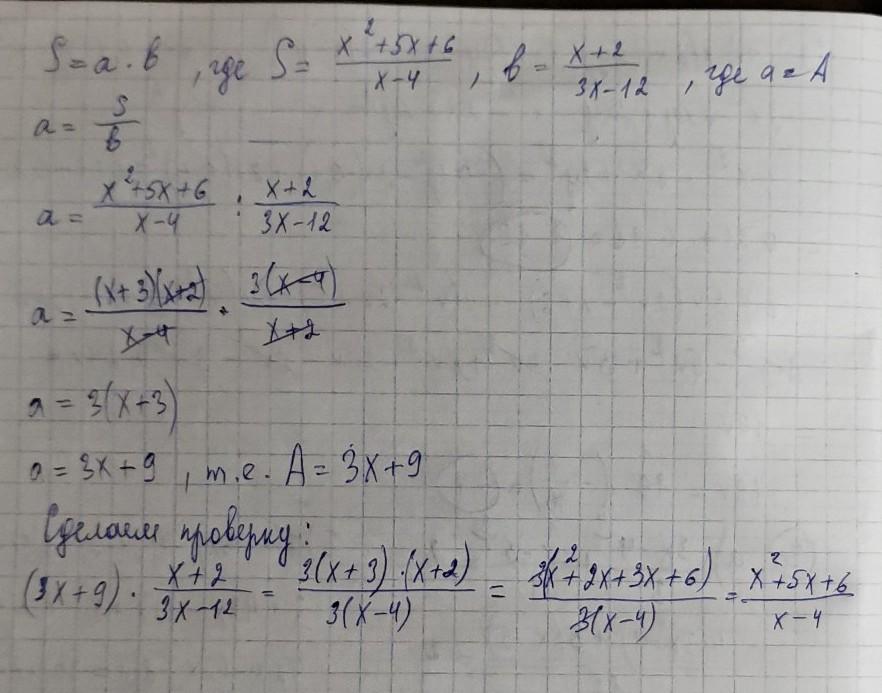 S = a · b , где S = (x²+5x+6)/(x-4) , b = (x+2)/(3x-12) , где a = A
a = S/b
a = (x²+5x+6)/(x-4) : (x+2)/(3x-12)
a = ((x+3)(x+2))/(x-4) · (3(x-4))/(x+2)
a = 3(x+3)
a = 3x+9 , т.е. A = 3x+9
Сделаем проверку:
(3x+9) · (x+2)/(3x-12) = (3(x+3)·(x+2))/(3(x-4)) = (3(x²+2x+3x+6))/(3(x-4)) = (x²+5x+6)/(x-4)